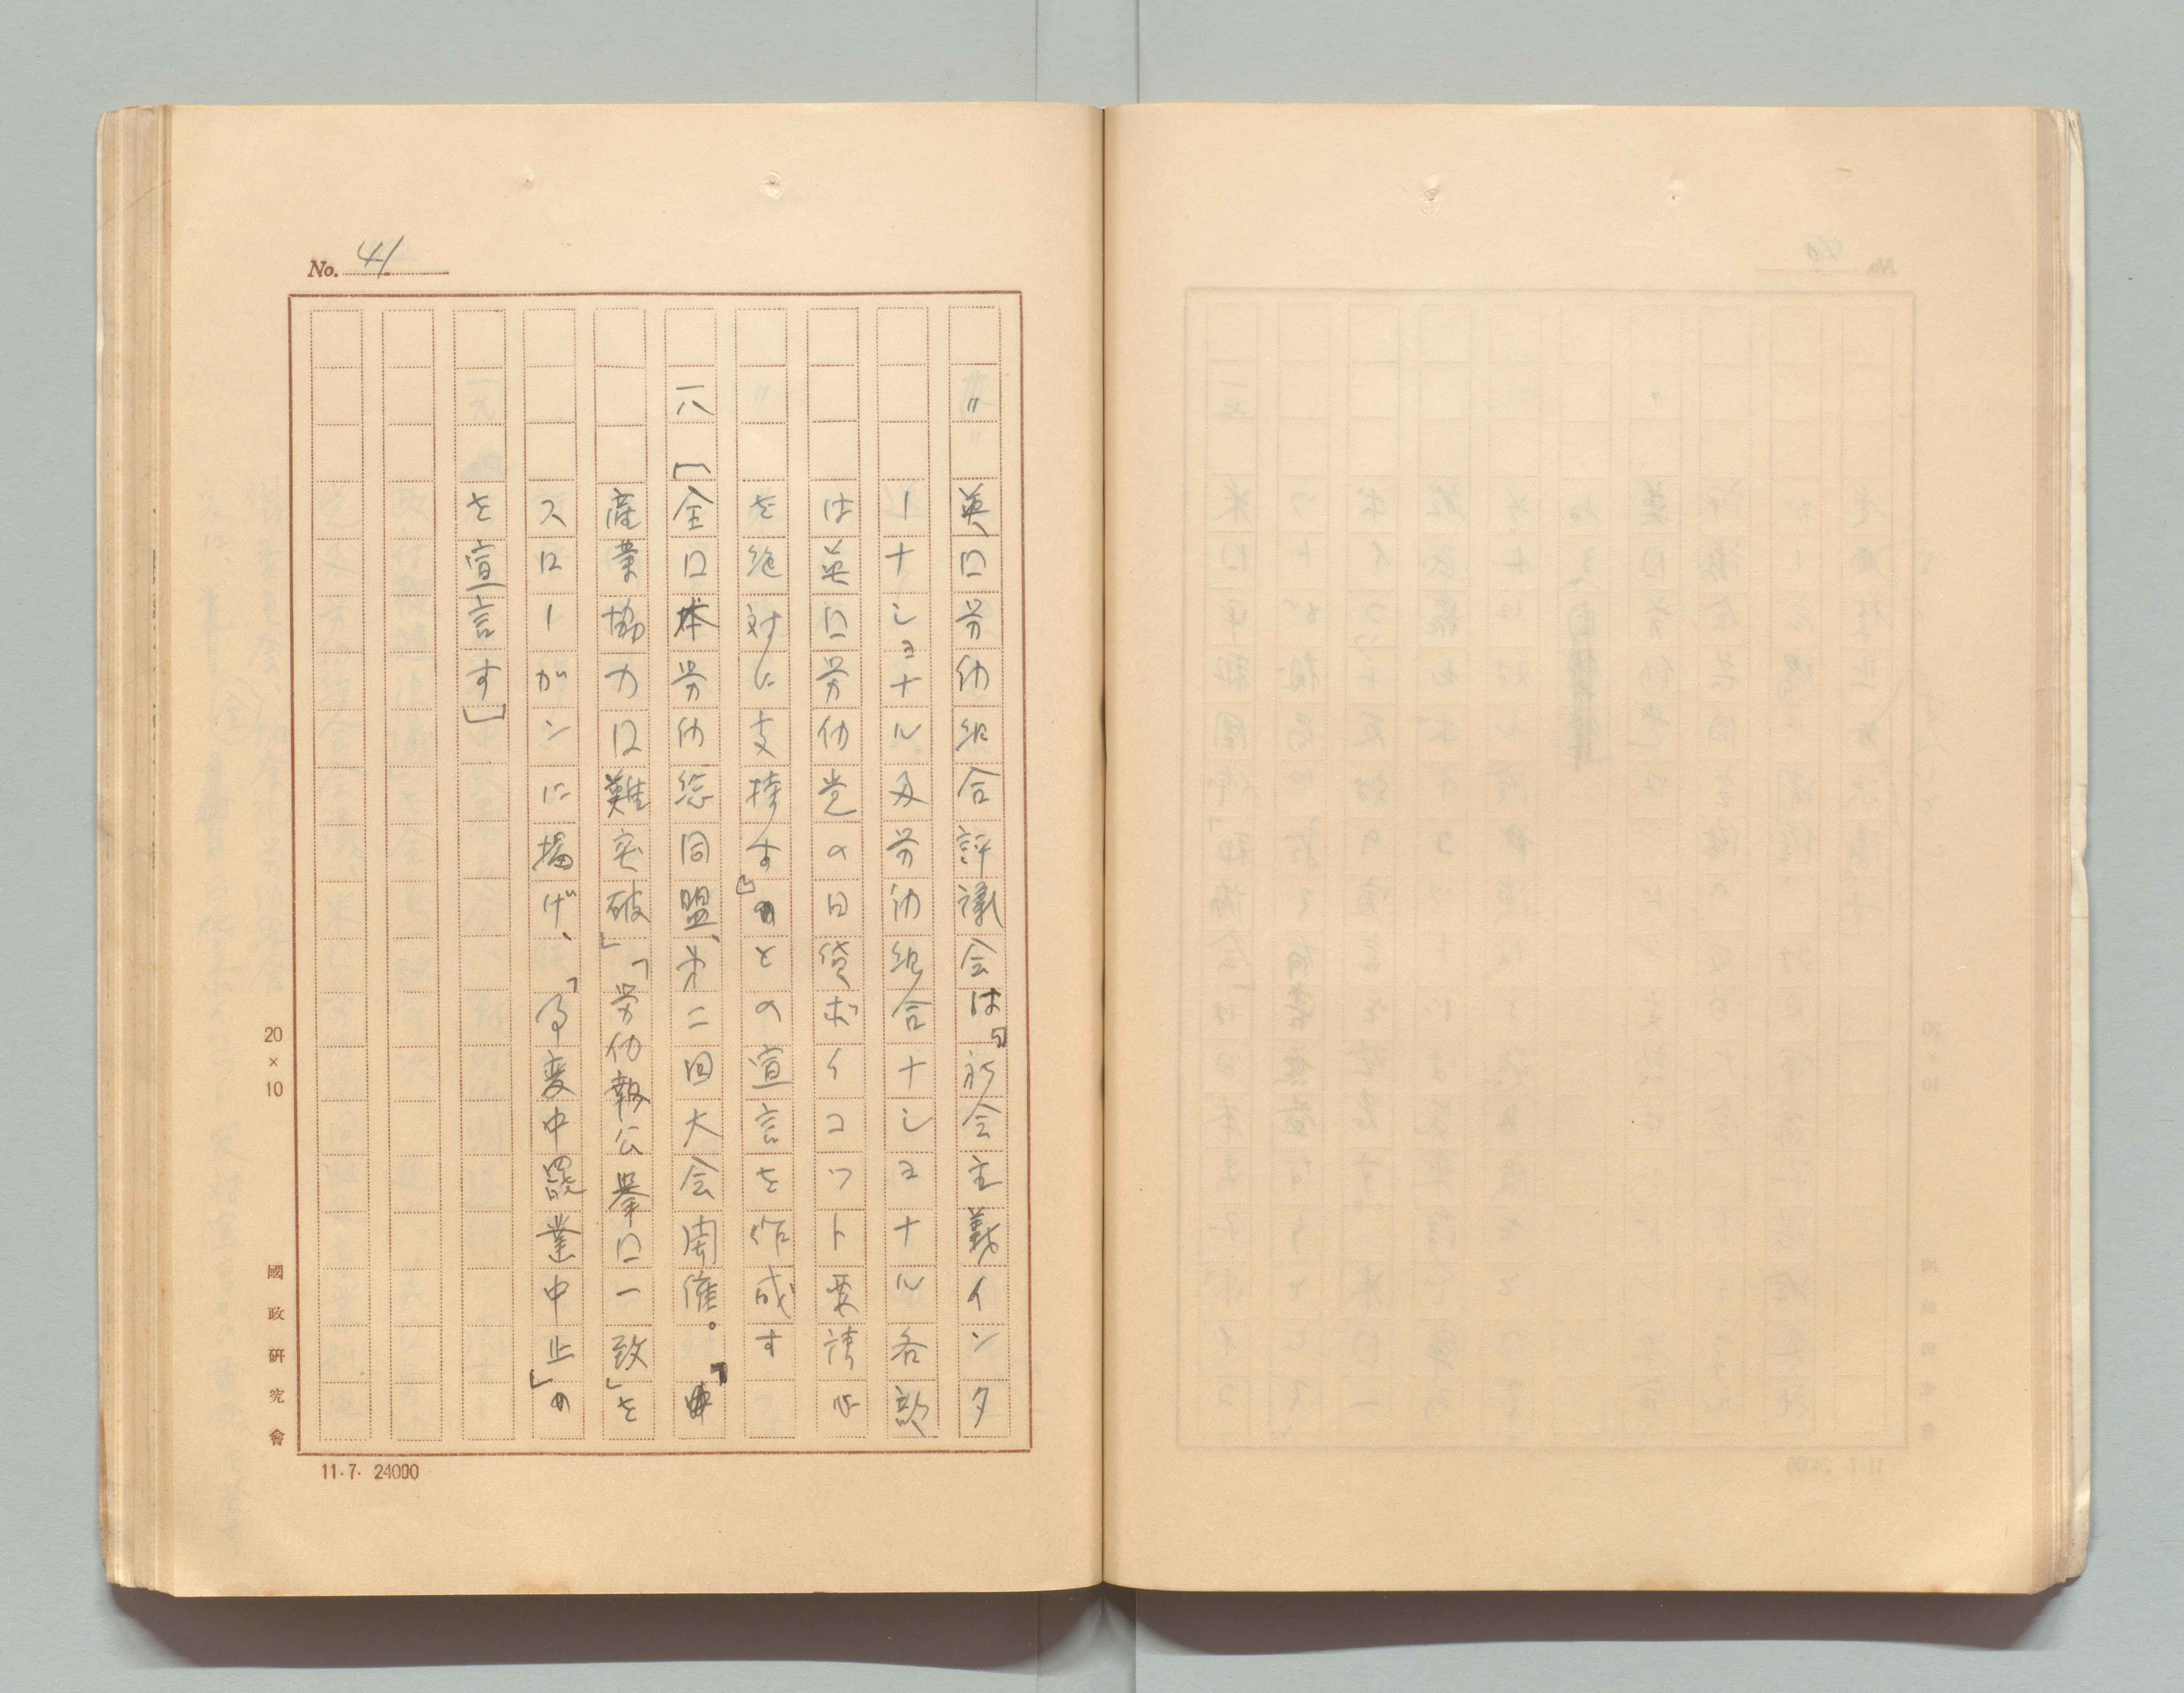 No. 41
〃 英国労仂組合評議会は「社会主義インタ
ーナショナル及労仂組合ナショナル各部
は英国労仂党の日貨ボイコツト要請
を絶対に支持す」との宣言を作成す
一八 「全日本労仂総同盟、第二回大会開催。「
産業協力国難突破」「労仂報公挙国一致」を
スローガンに掲げ、「事変中罷業中止」の
を宣言す」
20×10
國政研究會
11.7. 24000